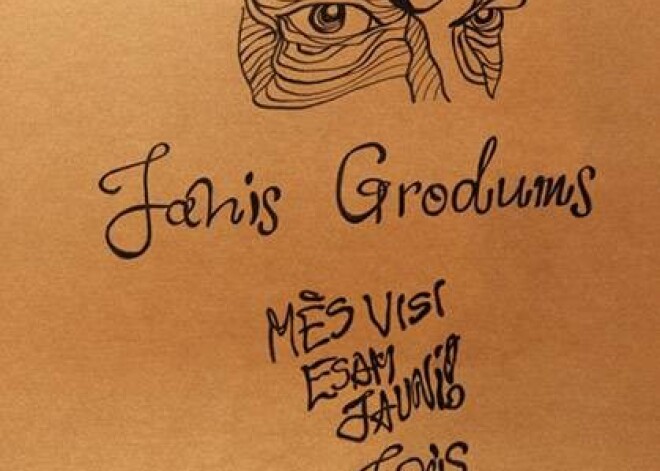 Janis Grodums
MĒS VISI
ESAM
JAUNI!